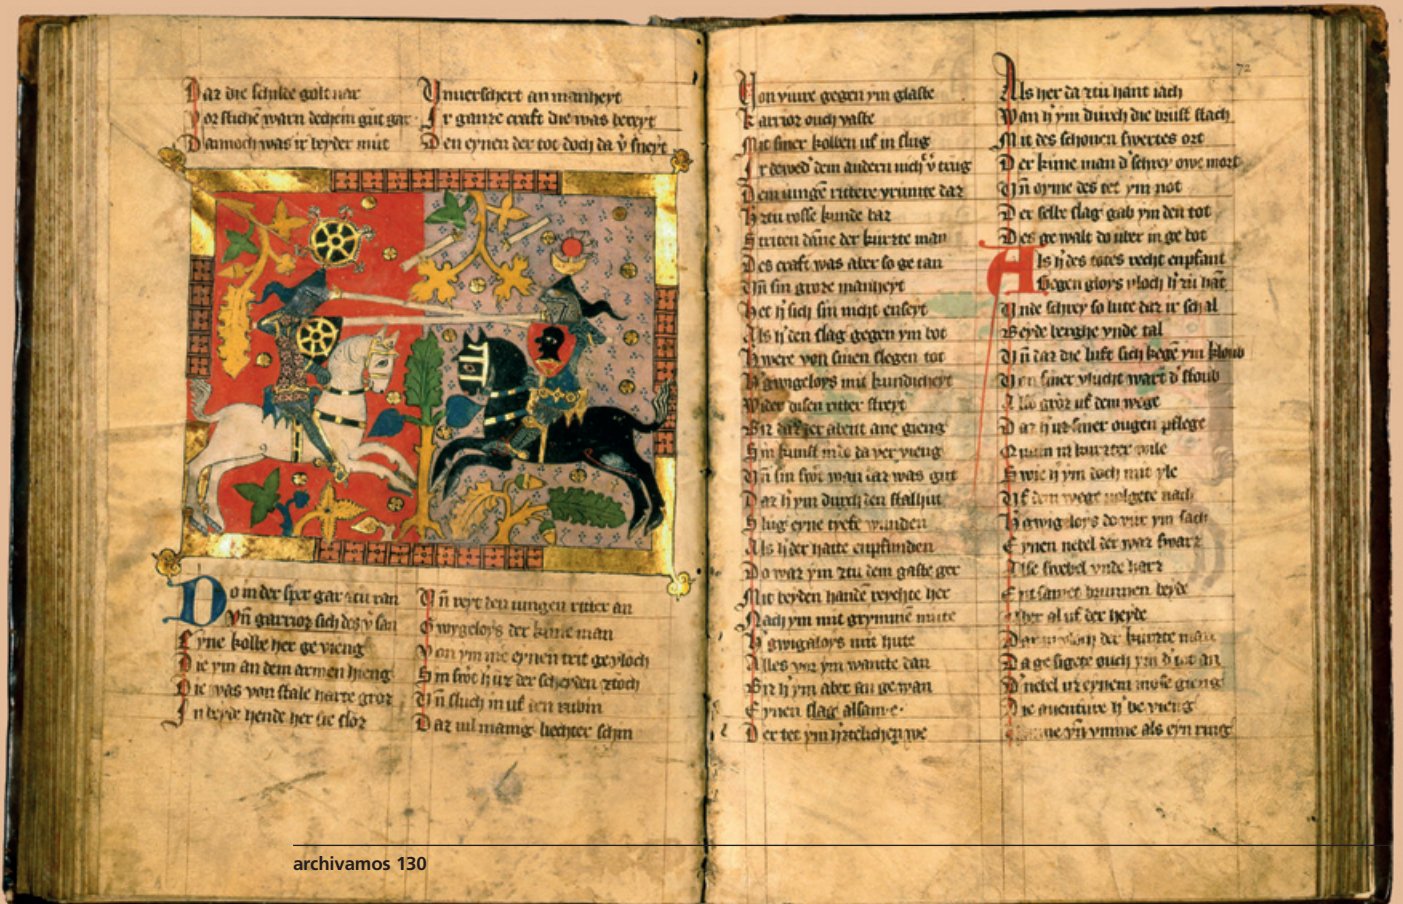 Daz die schilde golt var
Vor stiche warn dechein gut gar
Dannoch was ir beyder mut
Vnuerschert an manheyt
Ir ganze craft die was bereyt
Den eynen der tot doch da v̾sneyt
Do in der sper gar zcu ran
Vn̄ garrioz sich des v̾san
Eyne kolbe her ge vieng
Die ym an dem armen hieng
Die was von stale harte groz
In beyde hende her sie sloz
Vn̄ reyt den iungen ritter an
Gwygeloys der kune man
Von ym nie eynen trit ge vloch
Sin swert h̾ uz der scheyden zcoch
Vn̄ sluch in uf den rubin
Daz vil manig liechter schin
Von vuire gegen ym glaste
Karrioz ouch vaste
Mit siner kolben uf in slug
Ir deweder dem andern nicht v̾ trug
Dem iungē rittere vrumte daz
H̾ zcu rosse kunde baz
Striten dāne der kurzte man
Des craft was aber so ge tan
Vn̄ sin groze manheyt
Het h̾ sich sin nicht enseyt
Als h̾ den slag gegen ym bot
H̾ were von sinen slegen tot
H̾ gwigeloys mit kundicheyt
Wider disen ritter streyt
Biz daz der abent ane gieng
Sin kunst
Vn̄ sin swert wan daz was gut
Daz h̾ ym durch den stalhut
Slug eyne tyefe wunden
Als h̾ der hatte enpfunden
Do waz ym zcu dem gaste ger
Mit beyden handē reychte her
Nach ym mit grymmē mute
H̾ gwigaloys mit hute
Alles vor ym wancte dan
Biz h̾ ym aber an ge wan
Eynen slag alsam e
Der tet ym h̾tzelichen we
72
Als her da zcu hant iach
Wan h̾ ym durch die brust stach
Mit des schonen swertes ort
Der kune man d̾ schrey owe mort
Vn̄ des tet ym not
Der selbe slag gab ym den tot
Des ge walt do uber in ge bot
Als h̾ des totes recht enpfant
Gegen gloys vloch h̾ zu hāt
Vnde schrey so lute daz ir schal
Beyde berghe vnde tal
Vn̄ daz die luft sich kegē ym kloub
Von siner vlucht wart d̾ stoub
Also groz uf dem wege
Daz h̾ uz siner ougen pflege
Quam in kurzter wile
Swie h̾ ym doch mit yle
Uf dem wege volgete nach
H̾ gwigaloys do vur ym sach
Eynen nebel der waz swarz
Alse swebel vnde harz
beyde
Aber al uf der heyde
der kurzte man
Da ge sigete ouch ym d̾ tot an
D̾ nebel uz eynem mose gieng
Die auenture h̾ be vieng
vn̄ vmme als eyn ring
archivamos 130